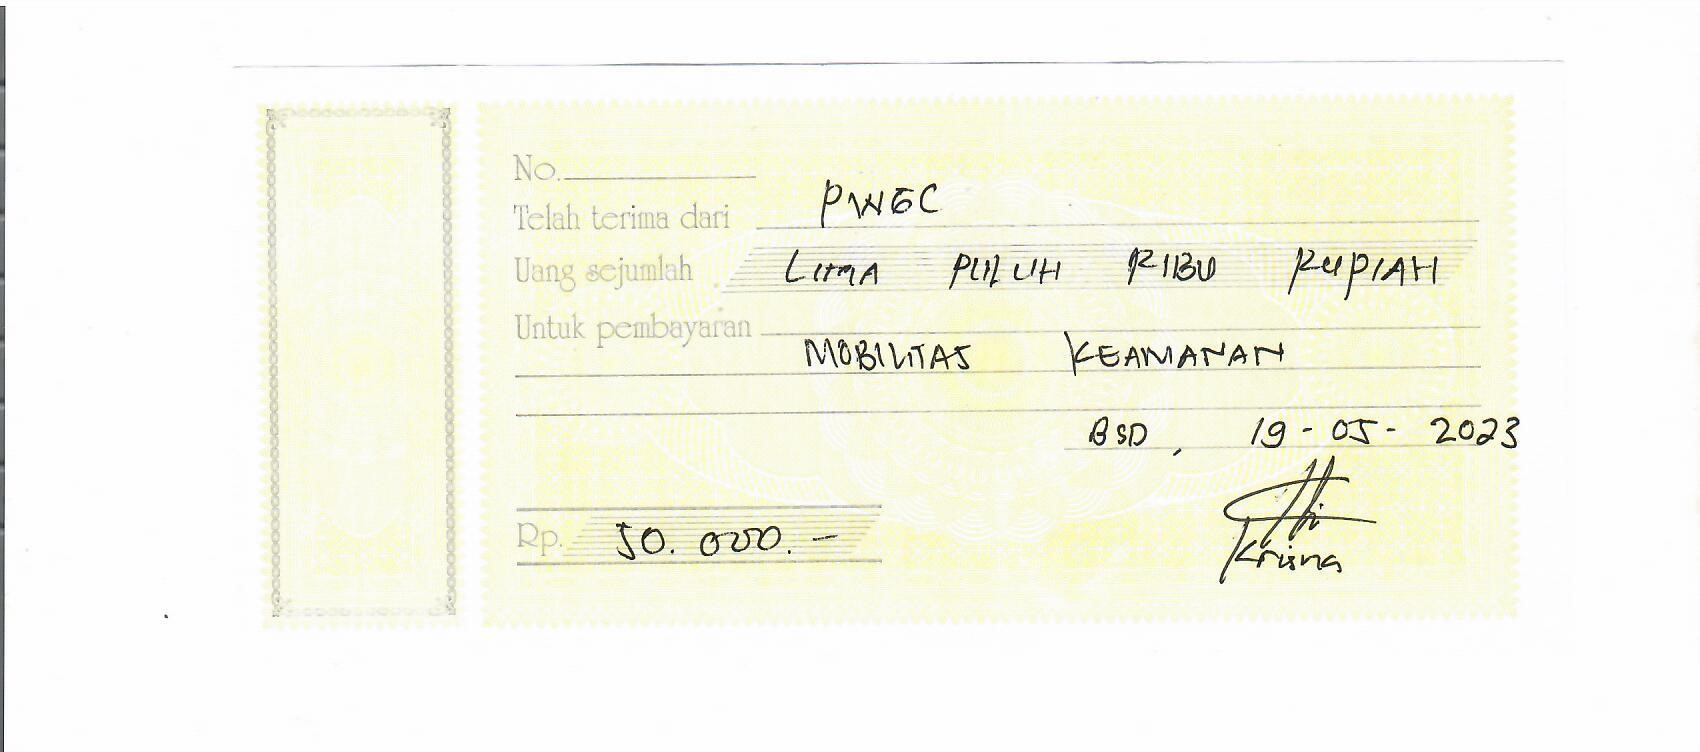 No.
Telah terima dari PWGC
Uang sejumlah LIMA PULUH RIBU RUPIAH
Untuk pembayaran
MOBILITAS KEAMANAN
BSD, 19-05-2023
Rp. 50.000.-
Krisna